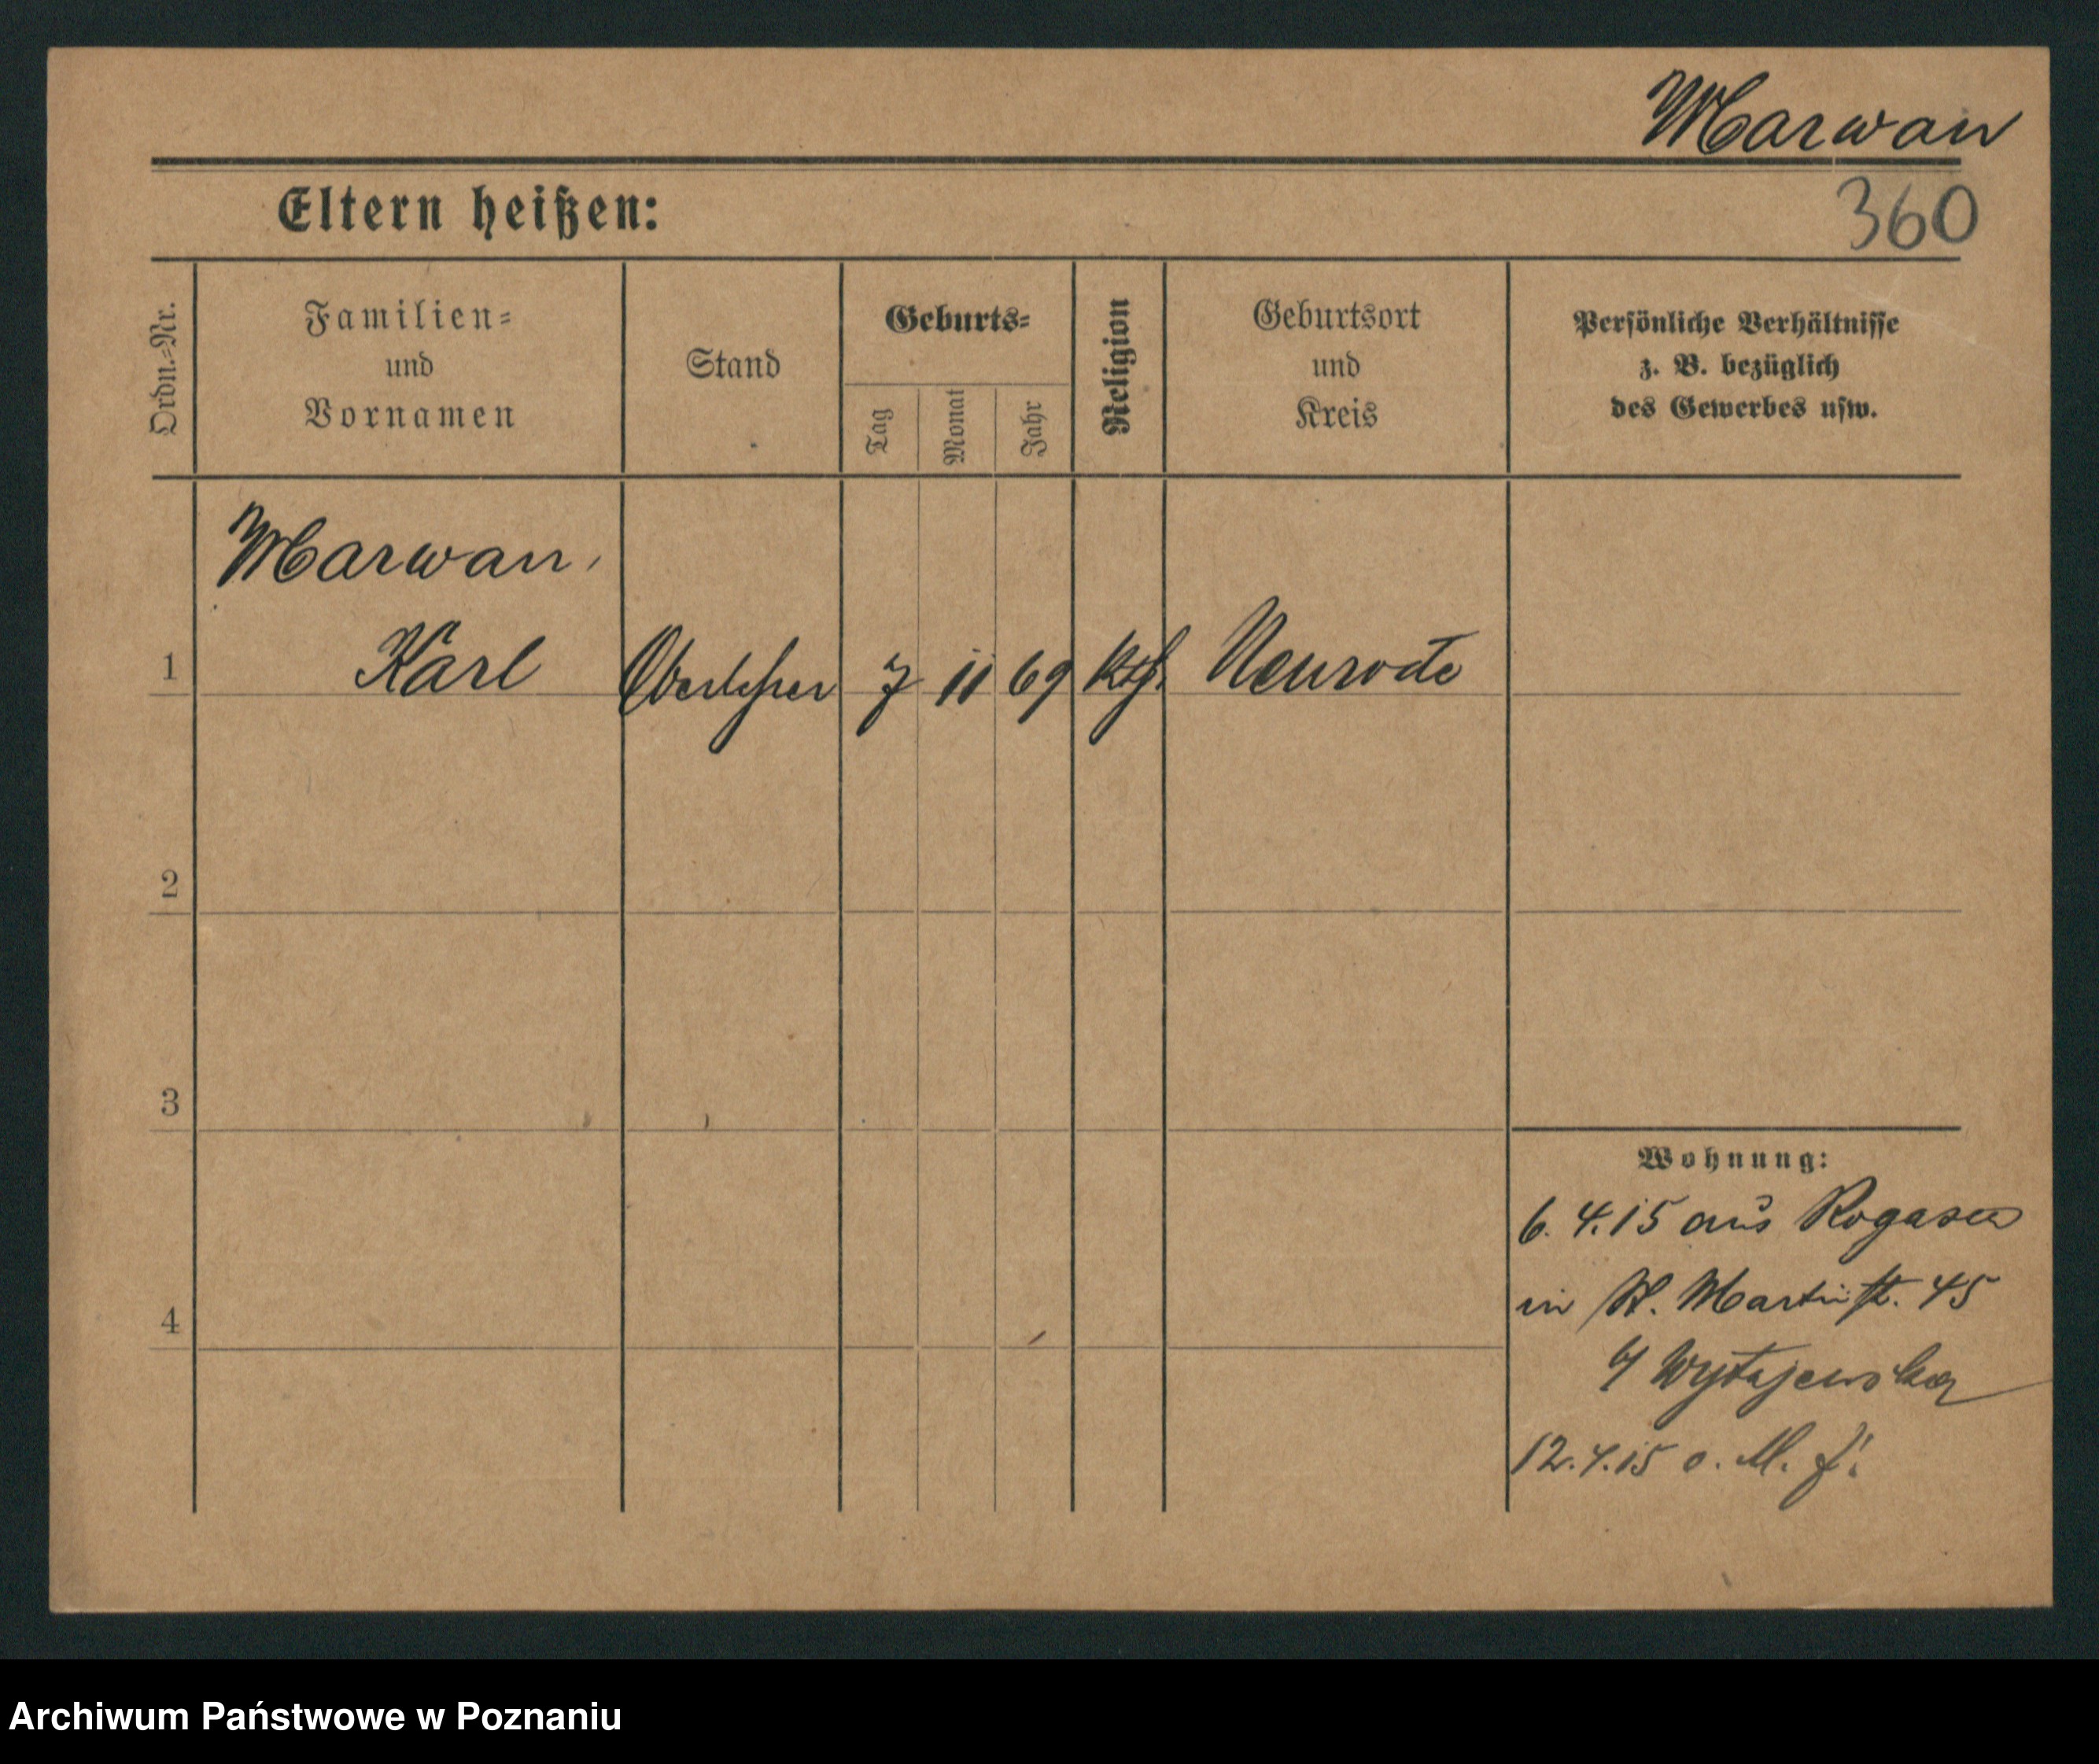 Marwan
Eltern heißen:
360
Ordn.-Nr.
Familien=
und
Vornamen
Stand
Geburts=
Tag
Monat
Jahr
Religion
Geburtsort
und
Kreis
Persönliche Verhältnisse
z. B. bezüglich
des Gewerbes usw.
Marwan,
1 Karl Oberlehrer 7 11 69 kth. Neurode
2
3
Wohnung:
6. 4. 15 aus Rogasen
in St. Martinstr. 45
4
b/
12. 4. 15 o. M. f.
Archiwum Państwowe w Poznaniu